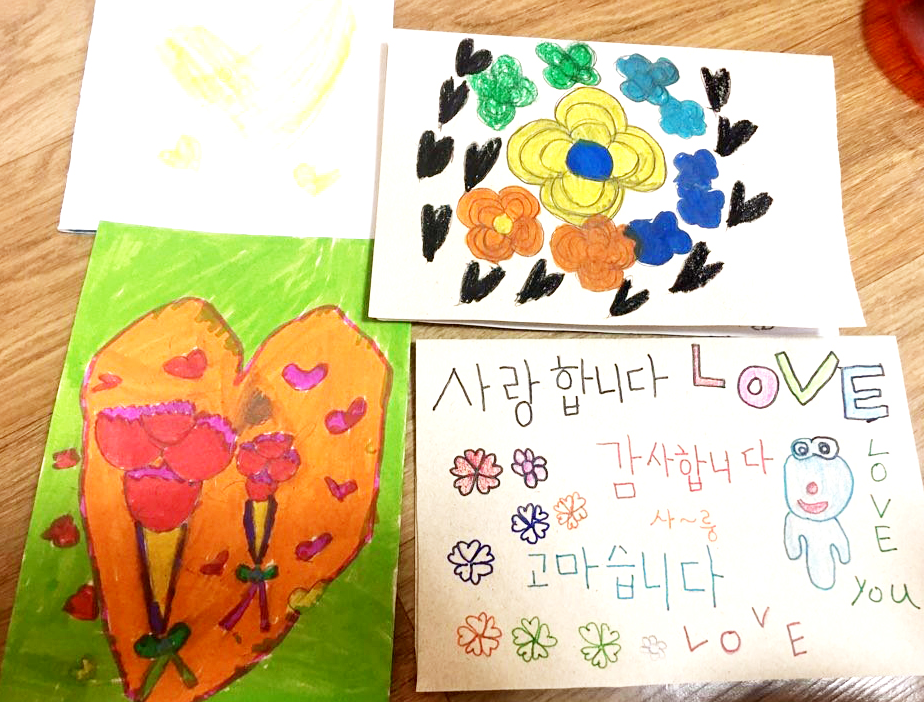 사랑합니다 LOVE
감사합니다
사~룽
고마습니다
LOVE
LOVE
YOU